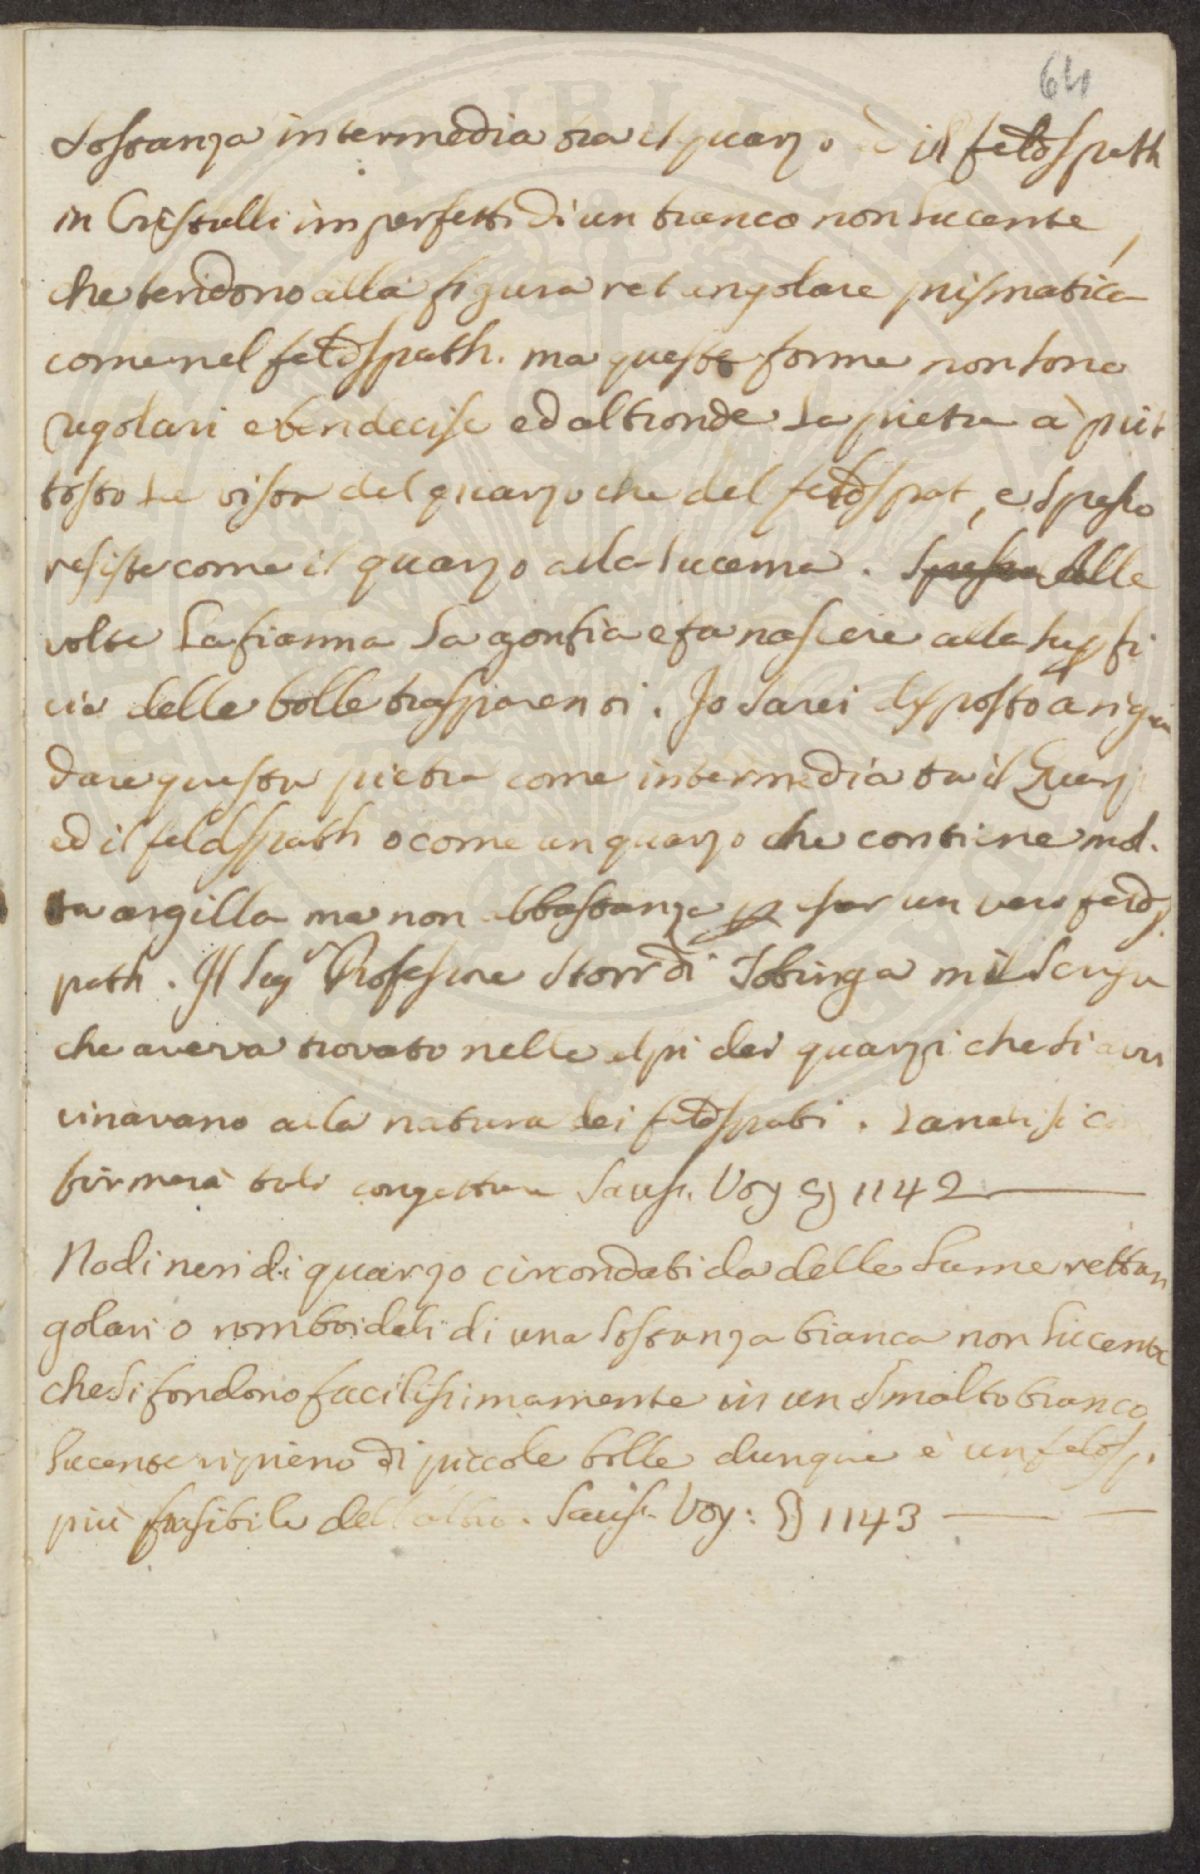 64
Sostanza intermedia tra il quarzo ed il feldspath
in Cristalli imperfetti di un bianco non lucente,
che tendono alla figura retangolare prismatica
come nel feldspath. ma queste forme non sono
regolari e ben decise ed altronde la pietra à piut
tosto le visor del quarzo che del feldspat, e spesso
resiste come il quarzo alla lucerna. Spesse Alle
volte la fiamma la gonfia e fa nascere alla supfi
cie delle bolle trasparenti. Io sarei disposto a rigua
dare questa pietra come intermedia tra il Quarz
ed il feldspath o come un quarzo che contiene mol.
ta argilla ma non abbastanza p esser un vero feld
path. Il Sigr Professore Storr di Tobinga mi
che aveva trovato nelle alpi dei quarzi che si avvi
cinavano alla natura dei feldspati. L'analisi con
firmerà tali congetture Sauss. Voy § 1142
Nodi neri di quarzo circondati da delle lame rettan
golari o romboidali di una sostanza bianca non lucente
che si fondono facilissimamente in un smalto bianco
lucente ripieno di piccole bolle dunque è un feldsp.
più fusibile dell'altro. Sauss. Voy: § 1143